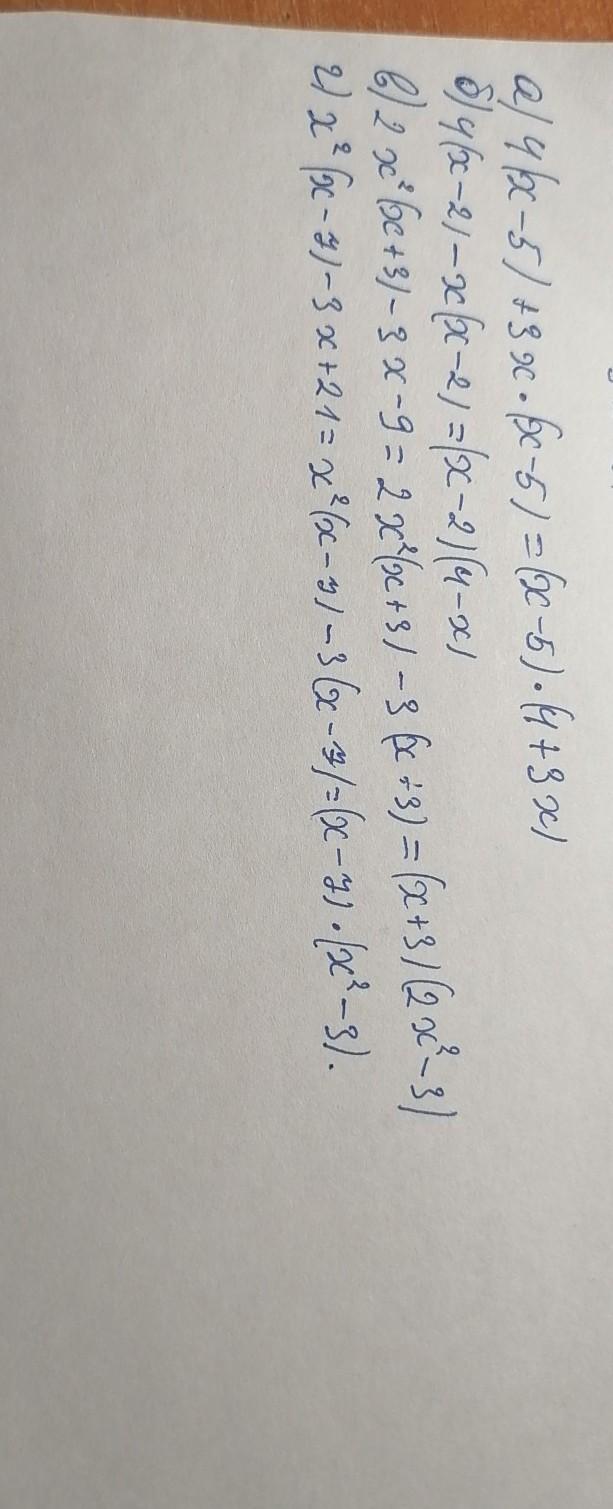 а) 4(x-5)+3x·(x-5)=(x-5)·(4+3x)
б) 4(x-2)-x(x-2)=(x-2)(4-x)
в) 2x²(x+3)-3x-9=2x²(x+3)-3(x+3)=(x+3)(2x²-3)
г) x²(x-7)-3x+21=x²(x-7)-3(x-7)=(x-7)·(x²-3).